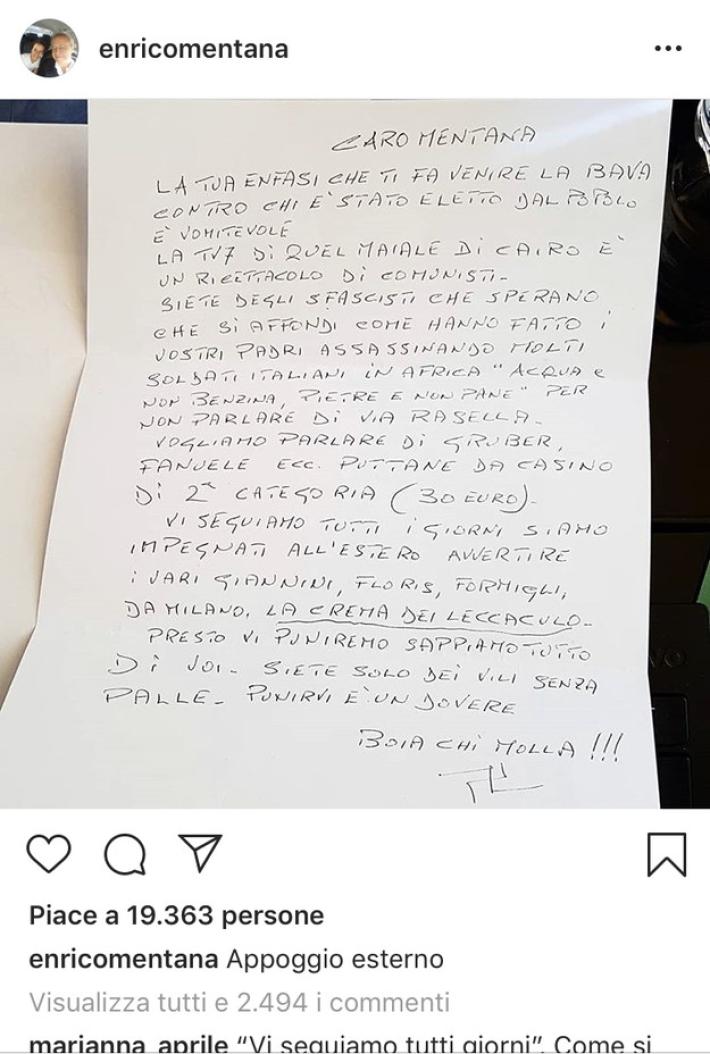 enricomentana
CARO MENTANA
LA TUA ENFASI CHE TI FA VENIRE LA BAVA
CONTRO CHI E' STATO ELETTO DAL POPOLO
E' VOMITEVOLE
LA TV7 DI QUEL MAIALE DI CAIRO E'
UN RICETTACOLO DI COMUNISTI-
SIETE DEGLI SFASCISTI CHE SPERANO
CHE SI AFFONDI COME HANNO FATTO I
VOSTRI PADRI ASSASSINANDO MOLTI
SOLDATI ITALIANI IN AFRICA "ACQUA E
NON BENZINA, PIETRE E NON PANE" PER
NON PARLARE DI VIA RASELLA-
VOGLIAMO PARLARE DI GRUBER,
FANUELE ECC. PUTTANE DA CASINO
DI 2ª CATEGORIA (30 EURO)-
VI SEGUIAMO TUTTI I GIORNI SIAMO
IMPEGNATI ALL'ESTERO AVVERTIRE
I VARI GIANNINI, FLORIS, FORMIGLI,
DAMILANO, LA CREMA DEI LECCACULO-
PRESTO VI PUNIREMO SAPPIAMO TUTTO
DI VOI- SIETE SOLO DEI VILI SENZA
PALLE- PUNIRVI E' UN DOVERE
BOIA CHI MOLLA !!!
Piace a 19.363 persone
enricomentana Appoggio esterno
Visualizza tutti e 2.494 i commenti
marianna_aprile "Vi seguiamo tutti giorni". Come si